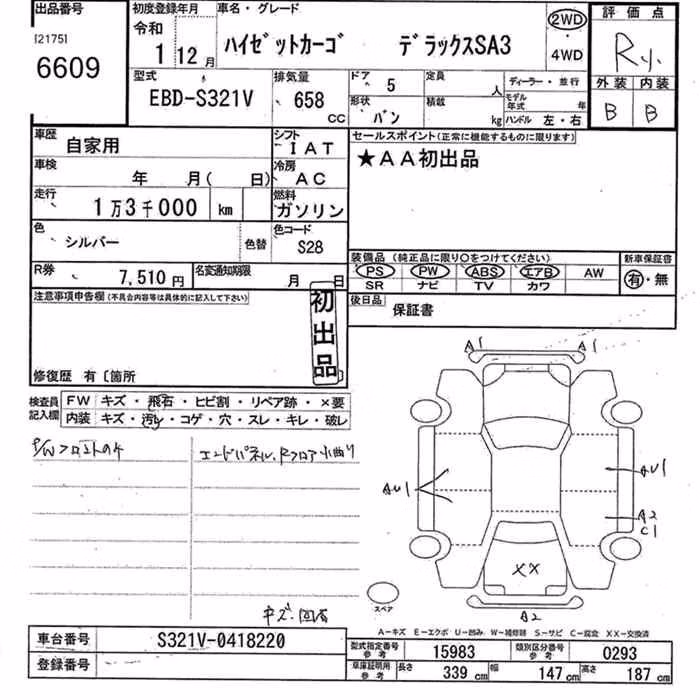 出品番号
[2175]
6609
初度登録年月
令和
1 12月
車名・グレード
ハイゼットカーゴ デラックスSA3
2WD
4WD
評価点
R小
外装 内装
B B
型式
EBD-S321V
排気量
658 CC
ドア 5
形状 バン
定員 人
積載 kg
ディーラー・並行
モデル年式 年
ハンドル 左・右
車歴 自家用
シフト IAT
車検 年 月( 日)
冷房 AC
走行 1万3千000 km
燃料 ガソリン
色 シルバー
色替
色コード S28
R券 7,510円
名変通知期限 月 日
セールスポイント(正常に機能するものに限ります)
★AA初出品
装備品(純正品に限り○をつけてください)
PS PW ABS エアB AW
SR ナビ TV カワ
新車保証書
有・無
後日品 保証書
注意事項申告欄(不具合内容等は具体的に記入して下さい)
初出品
修復歴 有〔箇所
検査員記入欄
FW キズ・飛石・ヒビ割・リペア跡・×要
内装 キズ・汚れ・コゲ・穴・スレ・キレ・破レ
P/Wフロントのみ
エンドパネル、Rフロア小曲り
キズ、凹有
A1 A1
AU1
AU1
A2
C1
XX
A2
スペア
A-キズ E-エクボ U-凹み W-補修跡 S-サビ C-腐食 XX-交換済
車台番号 S321V-0418220
登録番号
型式指定番号参考 15983
類別区分番号参考 0293
車庫証明用参考
長さ 339 cm 幅 147 cm 高さ 187 cm